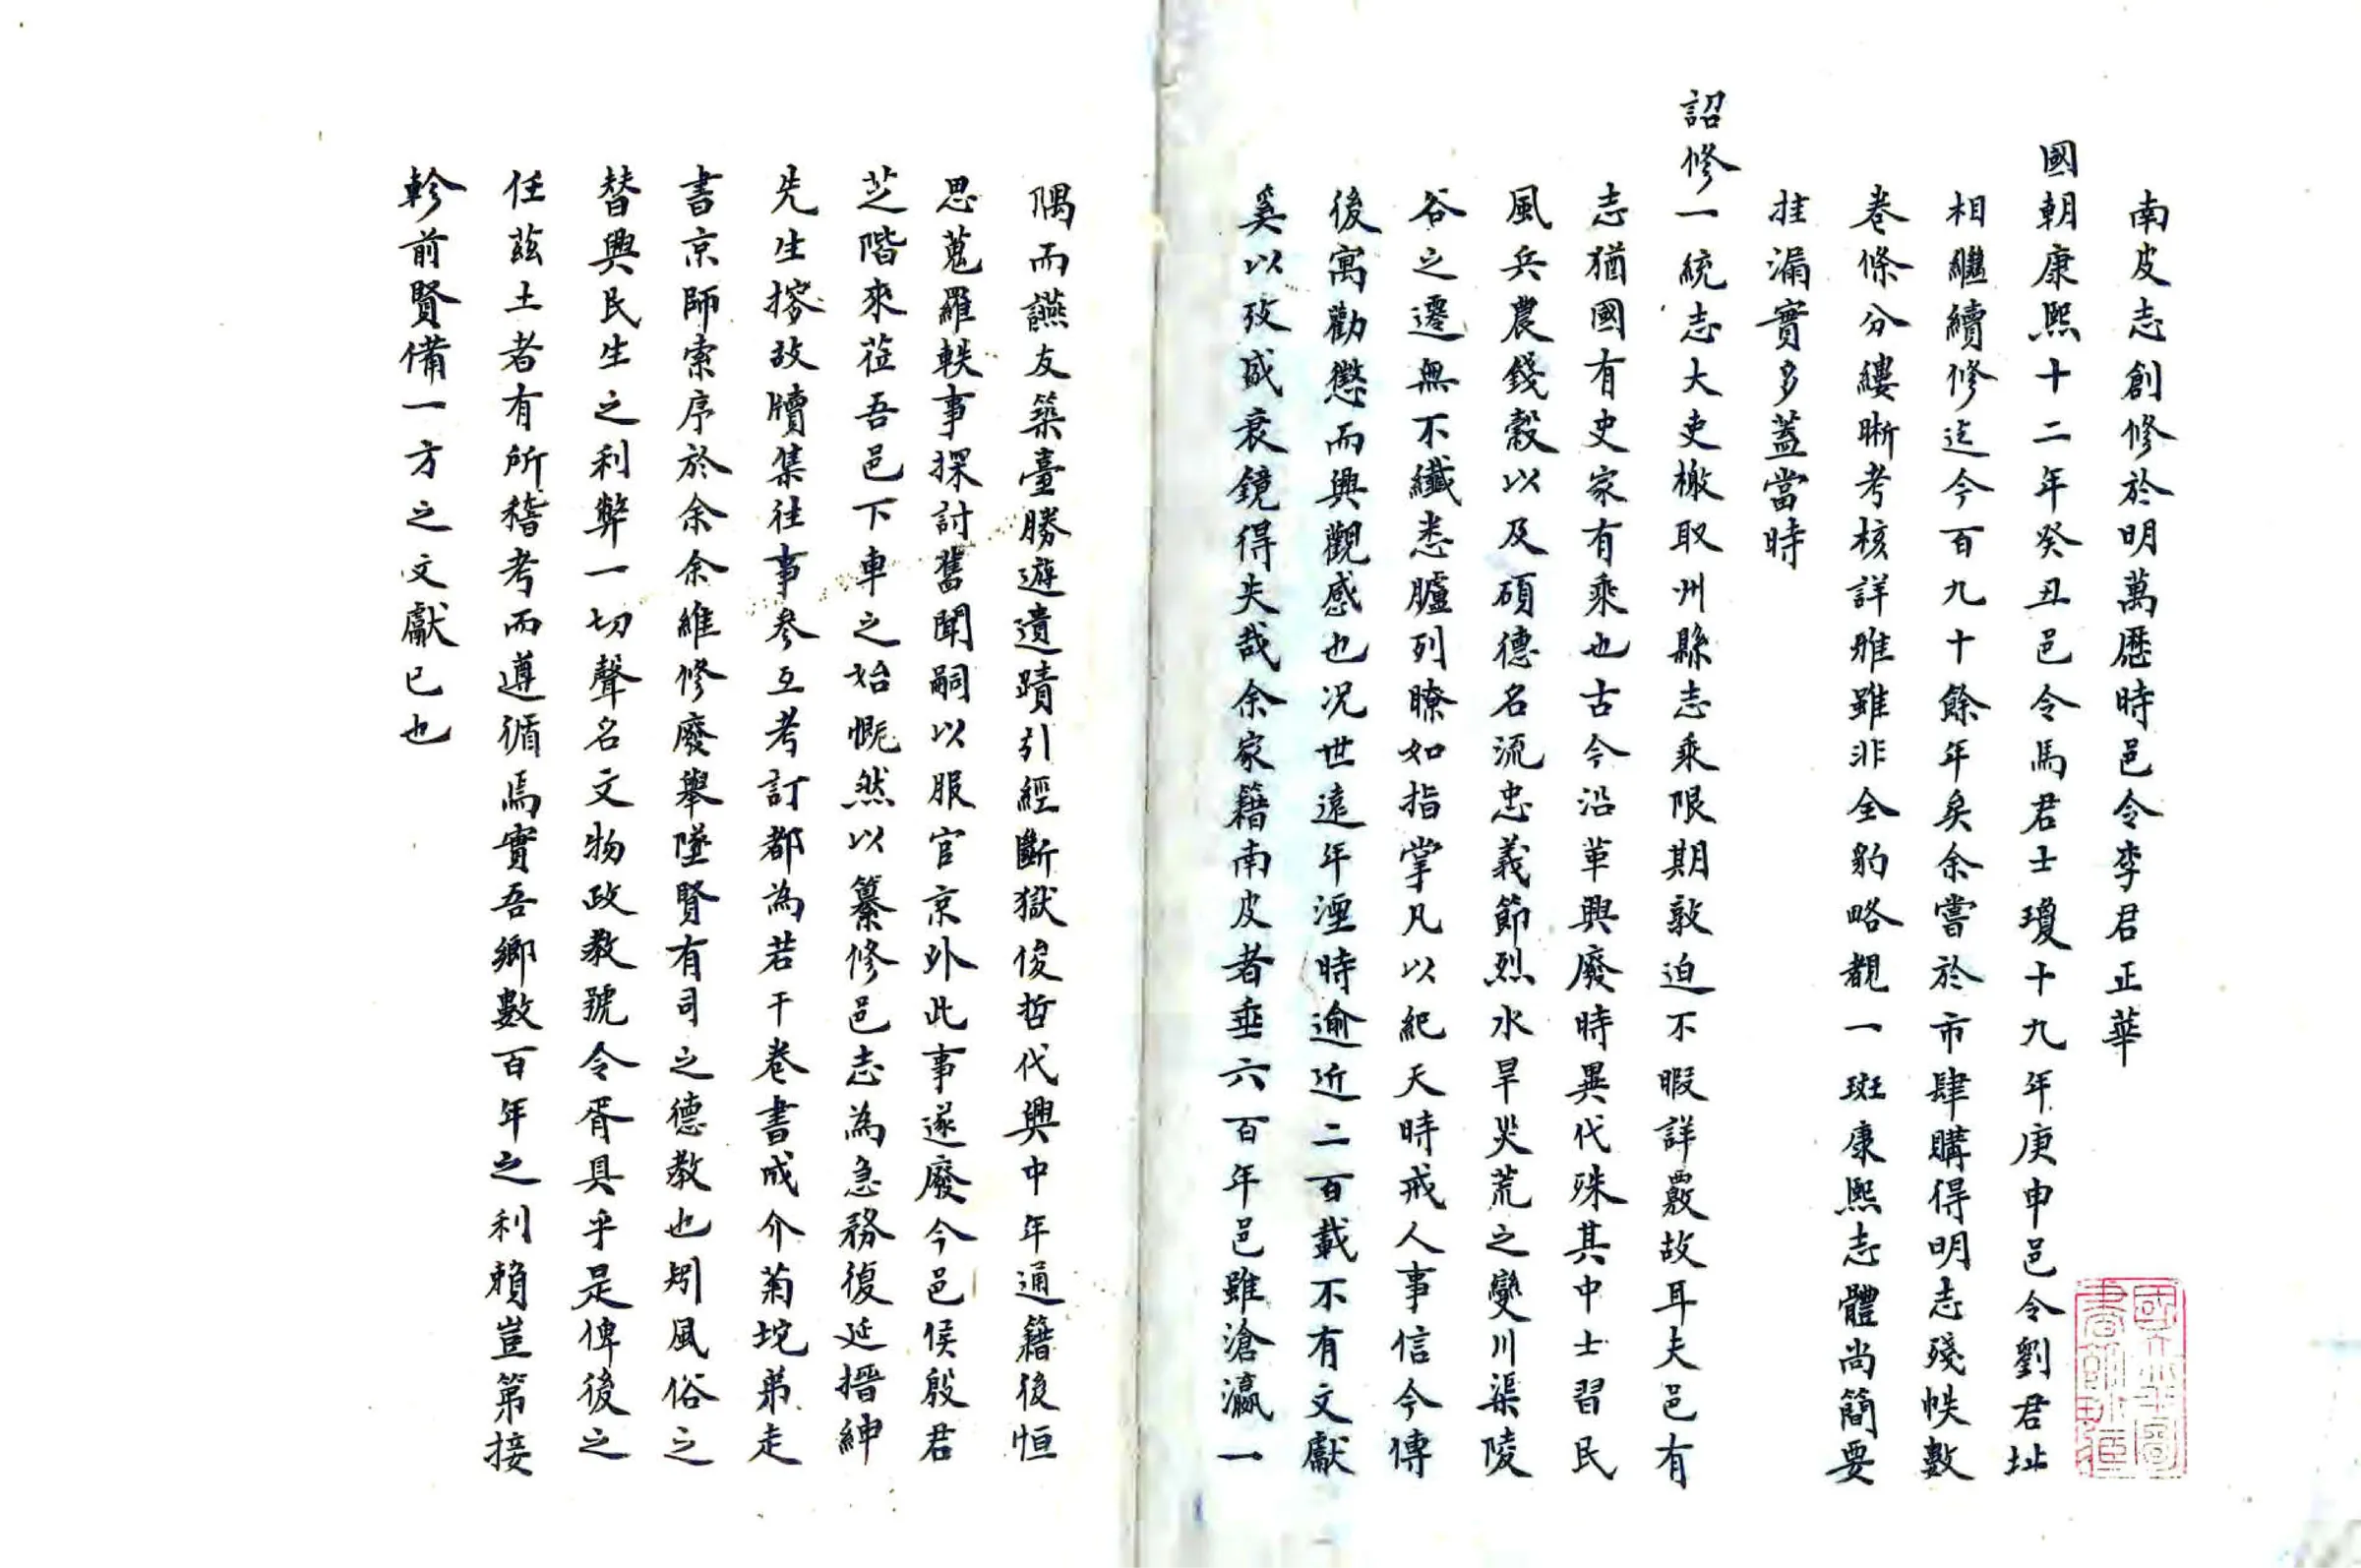 南皮志創修於明萬歷時邑令李君正華
國朝康熙十二年癸丑邑令馬君士瓊十九年庚申邑令劉君址
相繼續修迄今百九十餘年矣余嘗於市肆購得明志殘帙數
卷條分縷晰考核詳雅雖非全豹略覩一斑康熙志體尚簡要
挂漏實多蓋當時
詔修一統志大吏檄取州縣志乘限期敦迫不暇詳覈故耳夫邑有
志猶國有史家有乘也古今沿革興廢時異代殊其中士習民
風兵農錢穀以及碩德名流忠義節烈水旱災荒之變川渠陵
谷之遷無不纖悉臚列瞭如指掌凡以紀天時戒人事信今傳
後寓勸懲而興觀感也况世遠年湮時逾近二百載不有文獻
奚以攷盛衰鏡得失哉余家籍南皮者垂六百年邑雖滄瀛一
隅而讌友築臺勝遊遺蹟引經斷獄俊哲代興中年通籍後恒
思蒐羅軼事探討舊聞嗣以服官京外此事遂廢今邑侯殷君
芝階來莅吾邑下車之始慨然以纂修邑志為急務復延搢紳
先生搜故牘集往事參互考訂都為若干卷書成介菊坨弟走
書京師索序於余余維修廢舉墜賢有司之德教也矧風俗之
替興民生之利弊一切聲名文物政教號令胥具乎是俾後之
任茲土者有所稽考而遵循焉實吾鄉數百年之利賴豈第接
軫前賢備一方之文獻已也